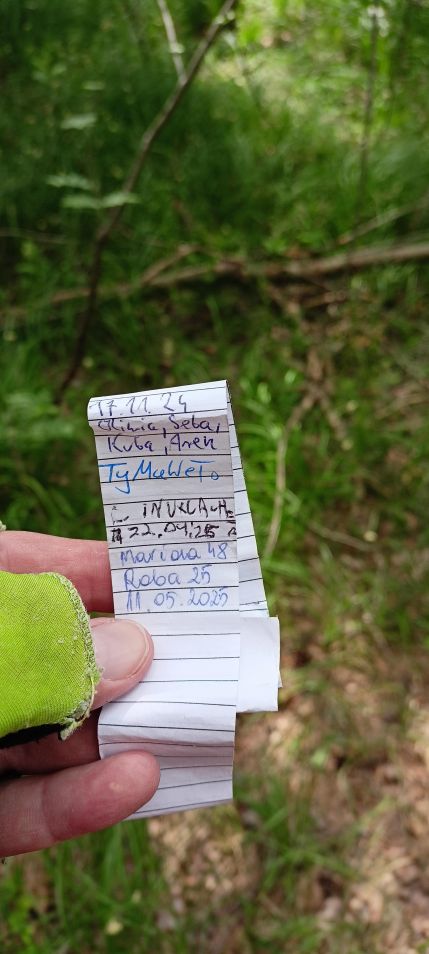 17.11.24
Oliwia, Seba,
Kuba, Arek
TyMaWeTo
INURLACHE
22.04.25
Mariola 48
Raba 25
11.05.2025